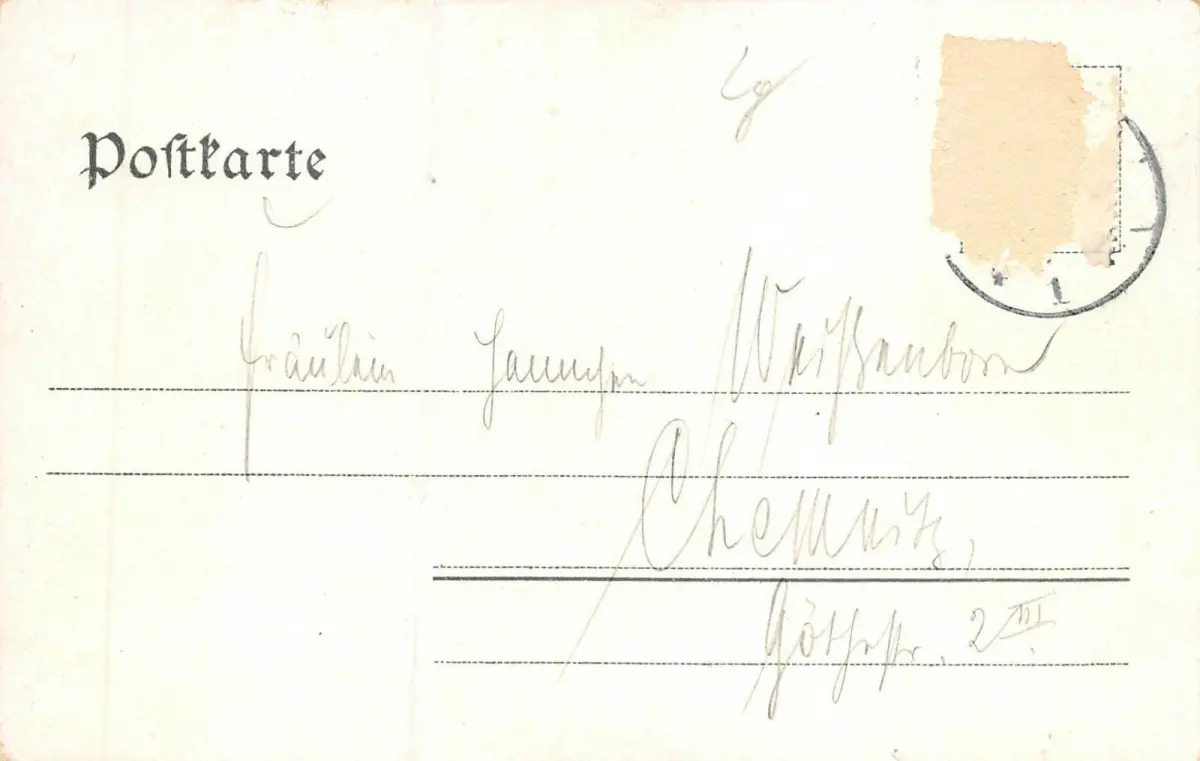 Postkarte
Fräulein Hannchen Weißenborn
Chemnitz,
Göthestr. 2 III.
1